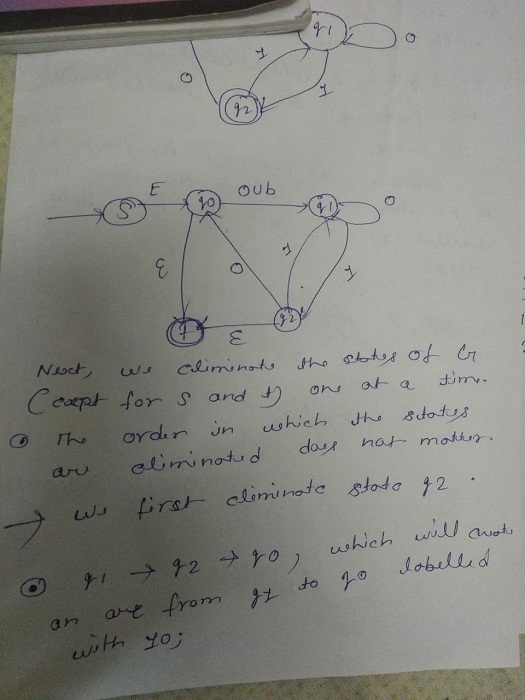 q1
0
1
1
0
q2
E
0Ub
S
q0
q1
0
ε
0
1
1
t
ε
q2
Next, we eliminate the states of G
(except for S and t) one at a time.
The order in which the states
are eliminated does not matter.
→ we first eliminate state q2.
q1 → q2 → q0, which will
an arc from q1 to q0 labelled
with 10;